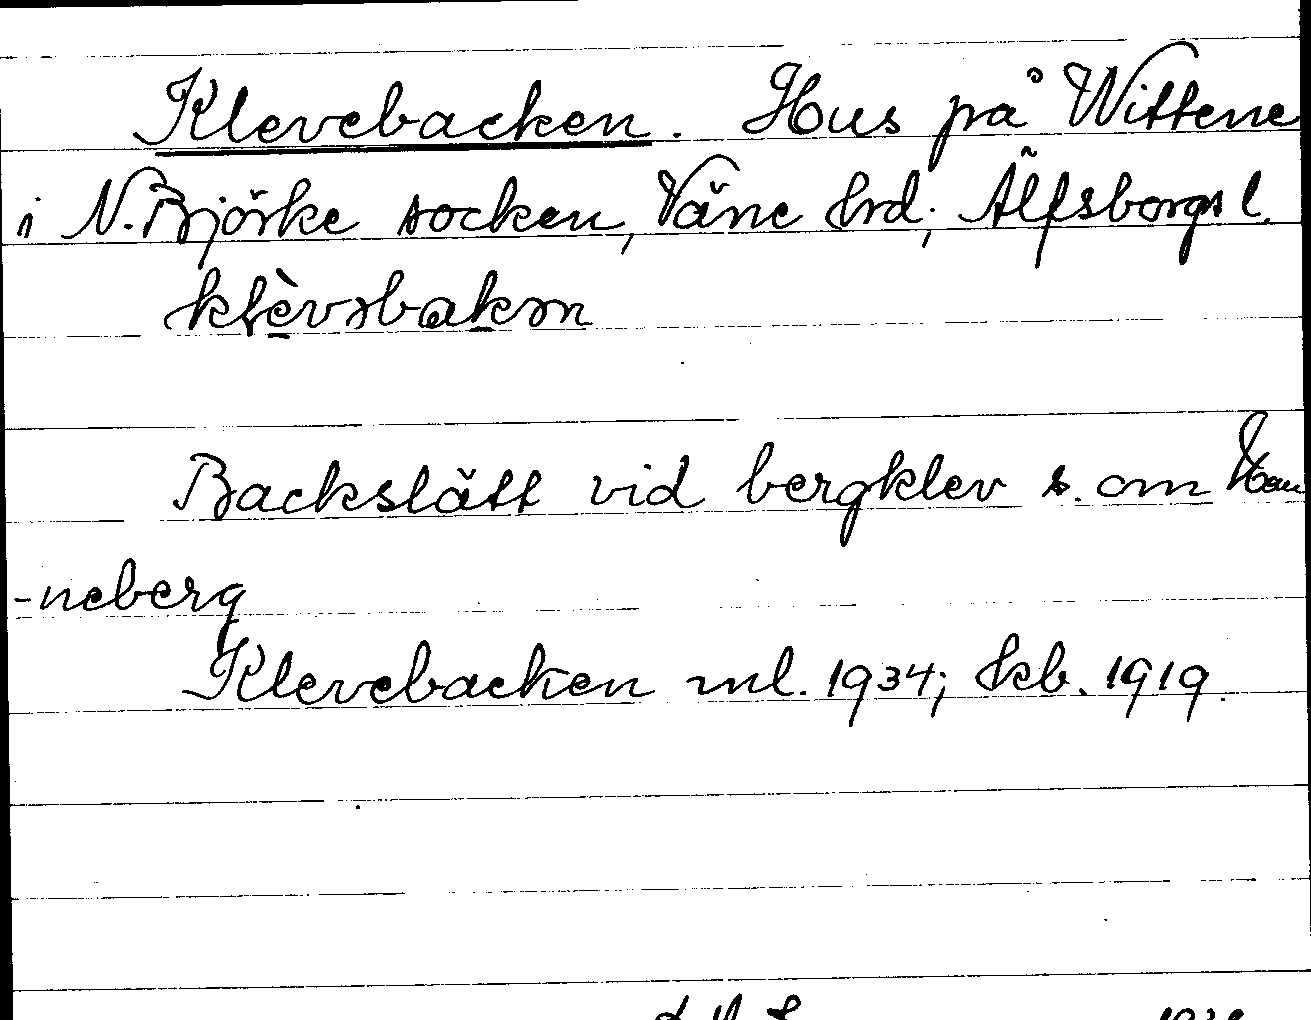 Klevebacken. Hus på Wittene
i N. Björke socken, Väne hrd; Älfsborgs l.
klèvəbakən
Backslätt vid bergklev s. om Han
-neberg
Klevebacken ml. 1934; kb. 1919.